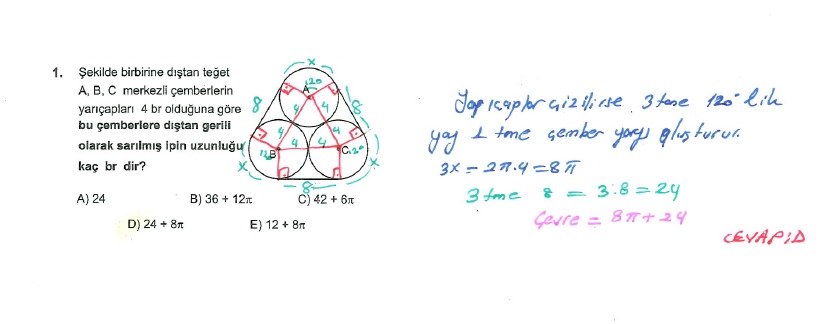 1. Şekilde birbirine dıştan teğet
A, B, C merkezli çemberlerin
yarıçapları 4 br olduğuna göre
bu çemberlere dıştan gerili
olarak sarılmış ipin uzunluğu
kaç br dir?
A) 24 B) 36 + 12π C) 42 + 6π
D) 24 + 8π E) 12 + 8π
x
120
A
8 4 4 8
4 4
120 B 4 4 C 120
x x
8
Yarıçaplar çizilirse 3 tane 120° lik
yay 1 tane çember yayı oluşturur.
3x = 2π.4 = 8π
3 tane 8 = 3.8 = 24
Çevre = 8π + 24
CEVAP: D